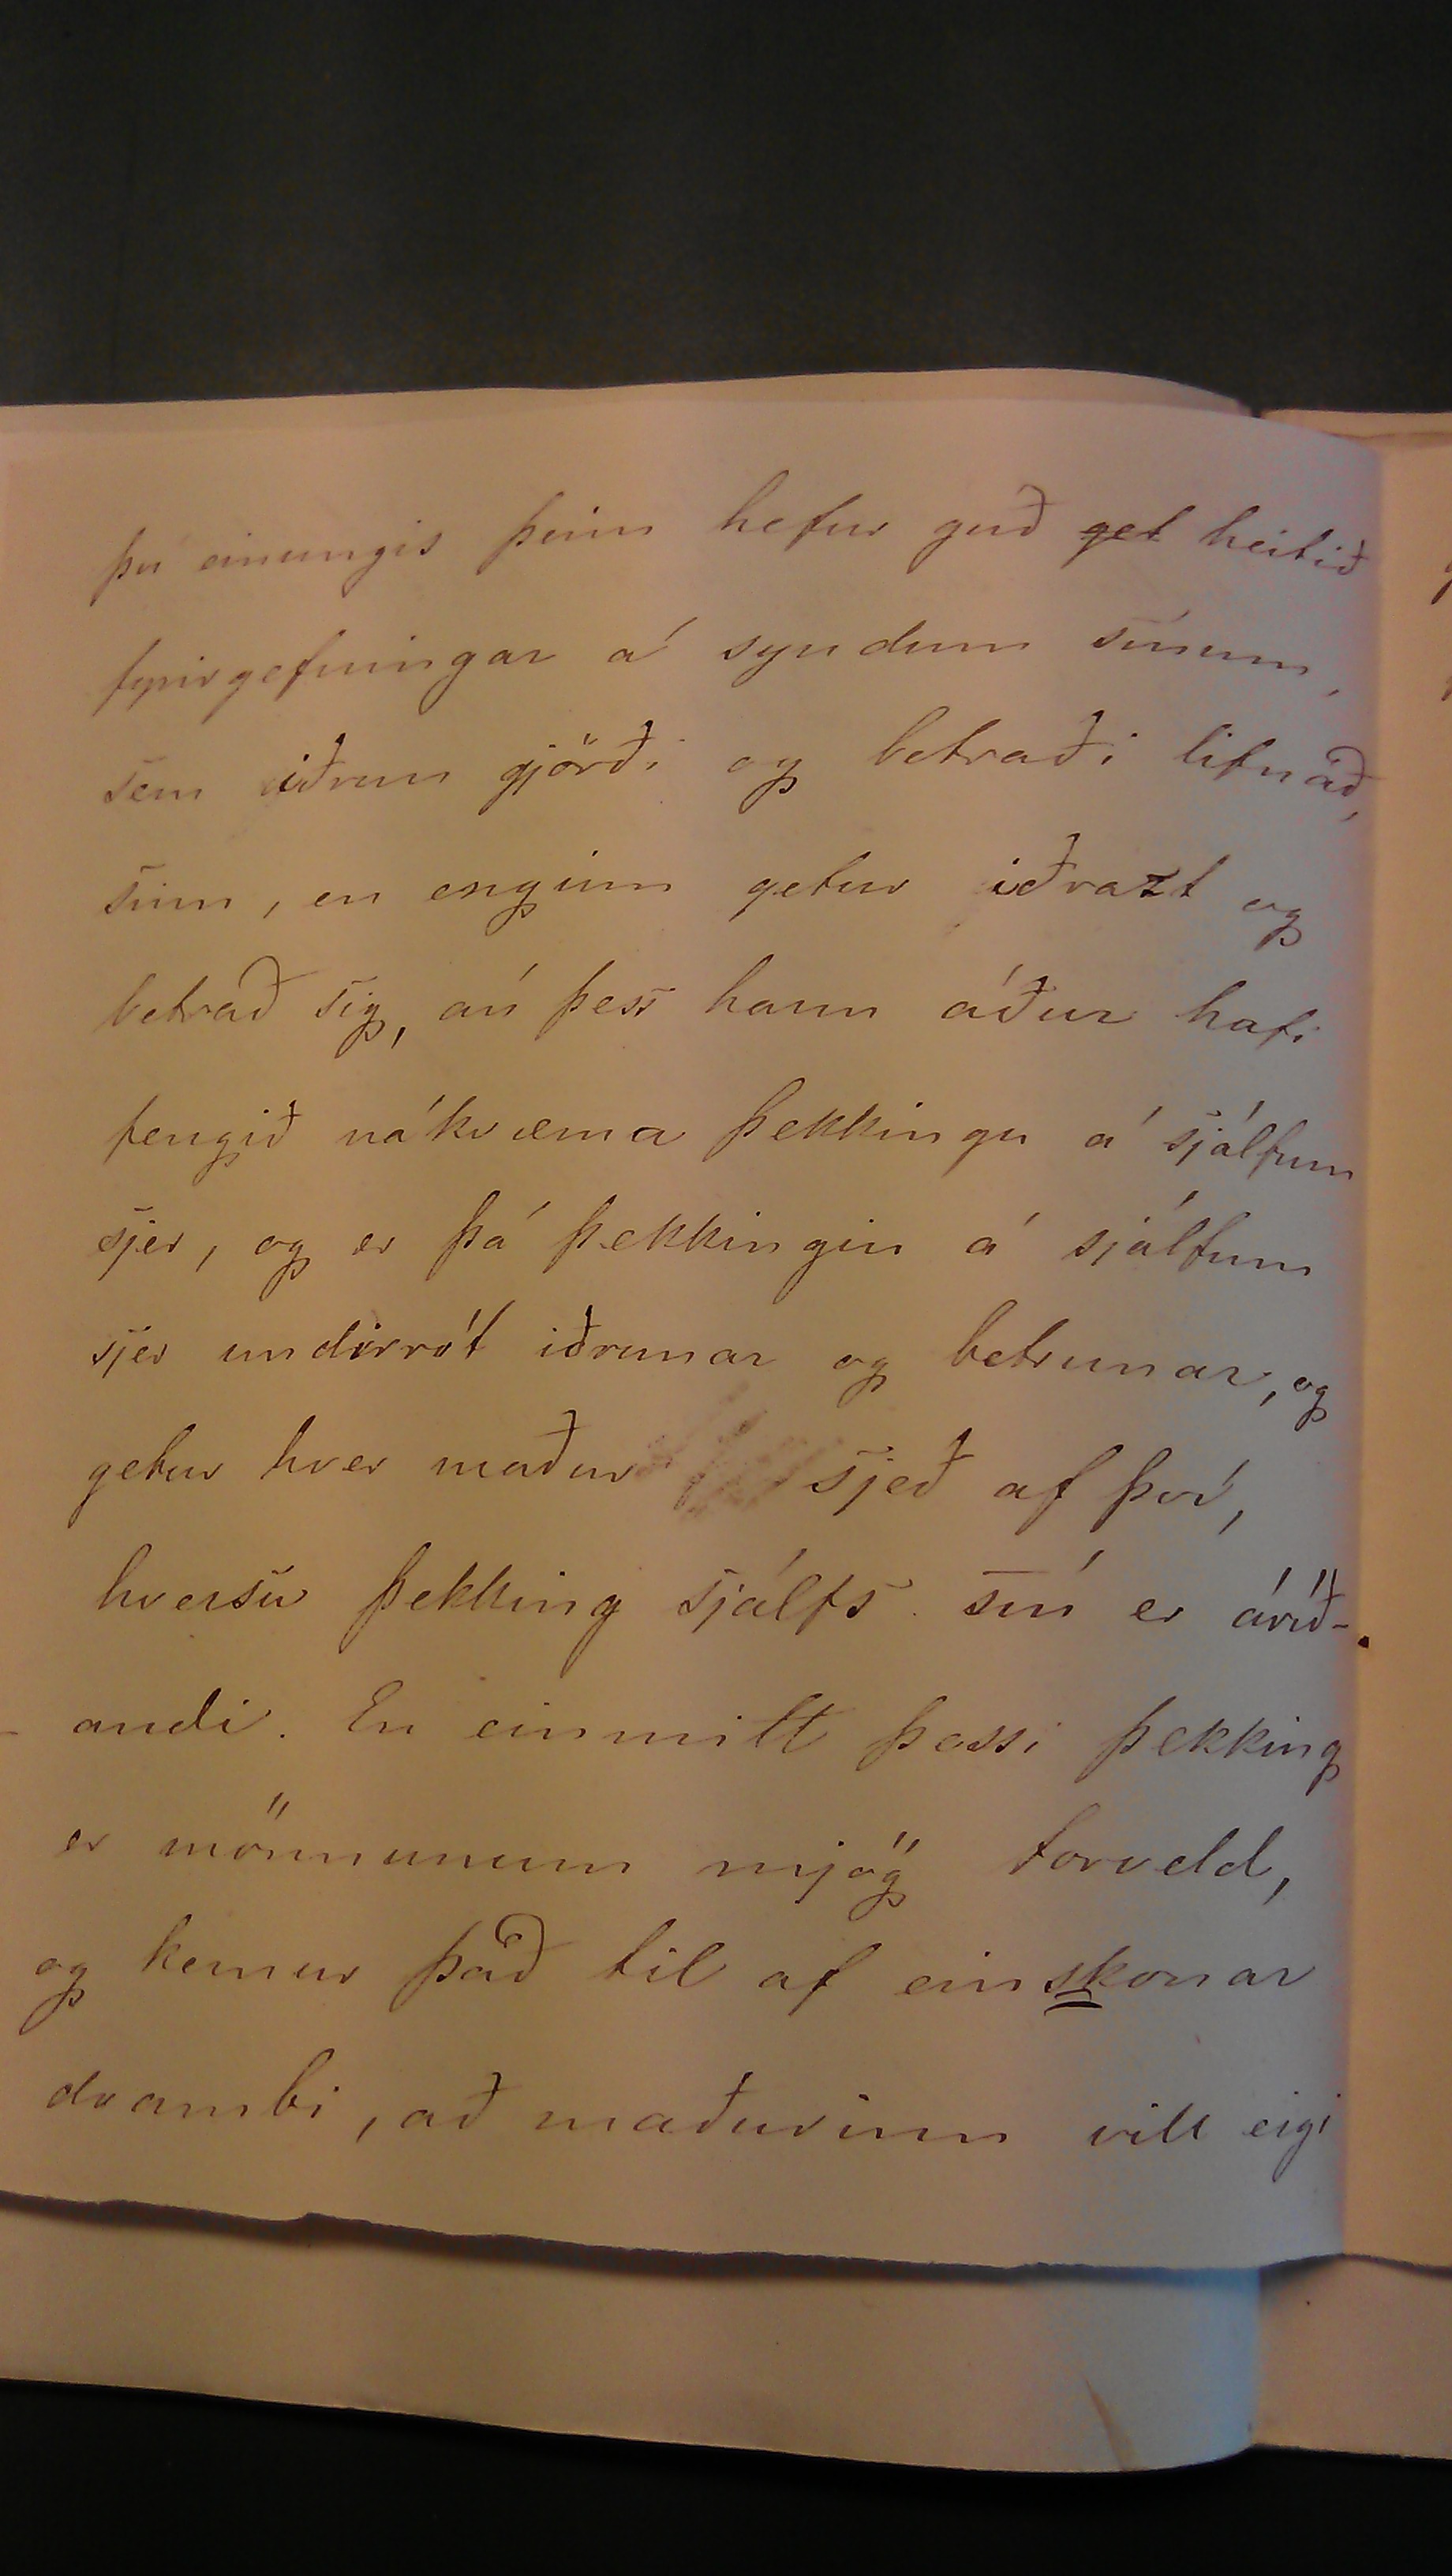 því einungis þeim hefur guð get heitið
fyrirgefningar á syndum sínum,
sem iðrun gjörði og betraði lifnað,
sinn, en enginn getur iðrazt og
betrað sig, án þess hann áður hafi
fengið nákvæma þekkingu á sjálfum
sjer, og er þá þekkingin á sjálfum
sjer undirrót iðrunar og betrunar, og
getur hver maður sjeð af því,
hversu þekking sjálfs sín er áríð-
- andi. En einmitt þessi þekking
er mönnunum mjög torveld,
og kemur það til af einskonar
drambi, að maðurinn vill eigi